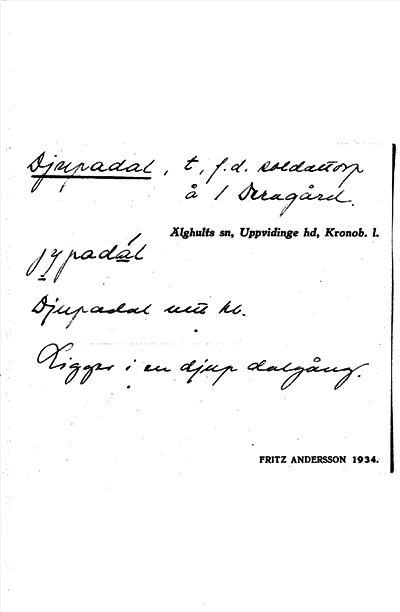 Djupadal, t, f.d. soldattorp
å 1 Deragård.
Älghults sn, Uppvidinge hd, Kronob. l.
jypadál
Djupadal
Ligger i en djup dalgång.
FRITZ ANDERSSON 1934.